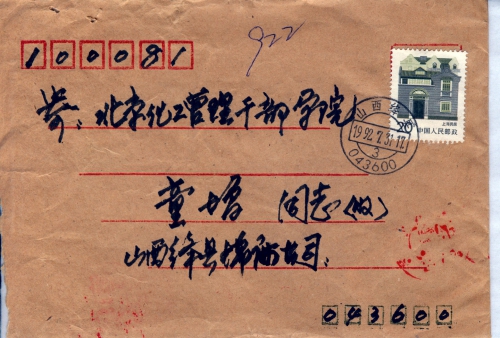 922
100081
寄: 北京化工管理干部学院
20
上海民居
中国人民邮政
山西绛县
1992.7.31.17
3
043600
童增 同志(收)
山西绛县
043600